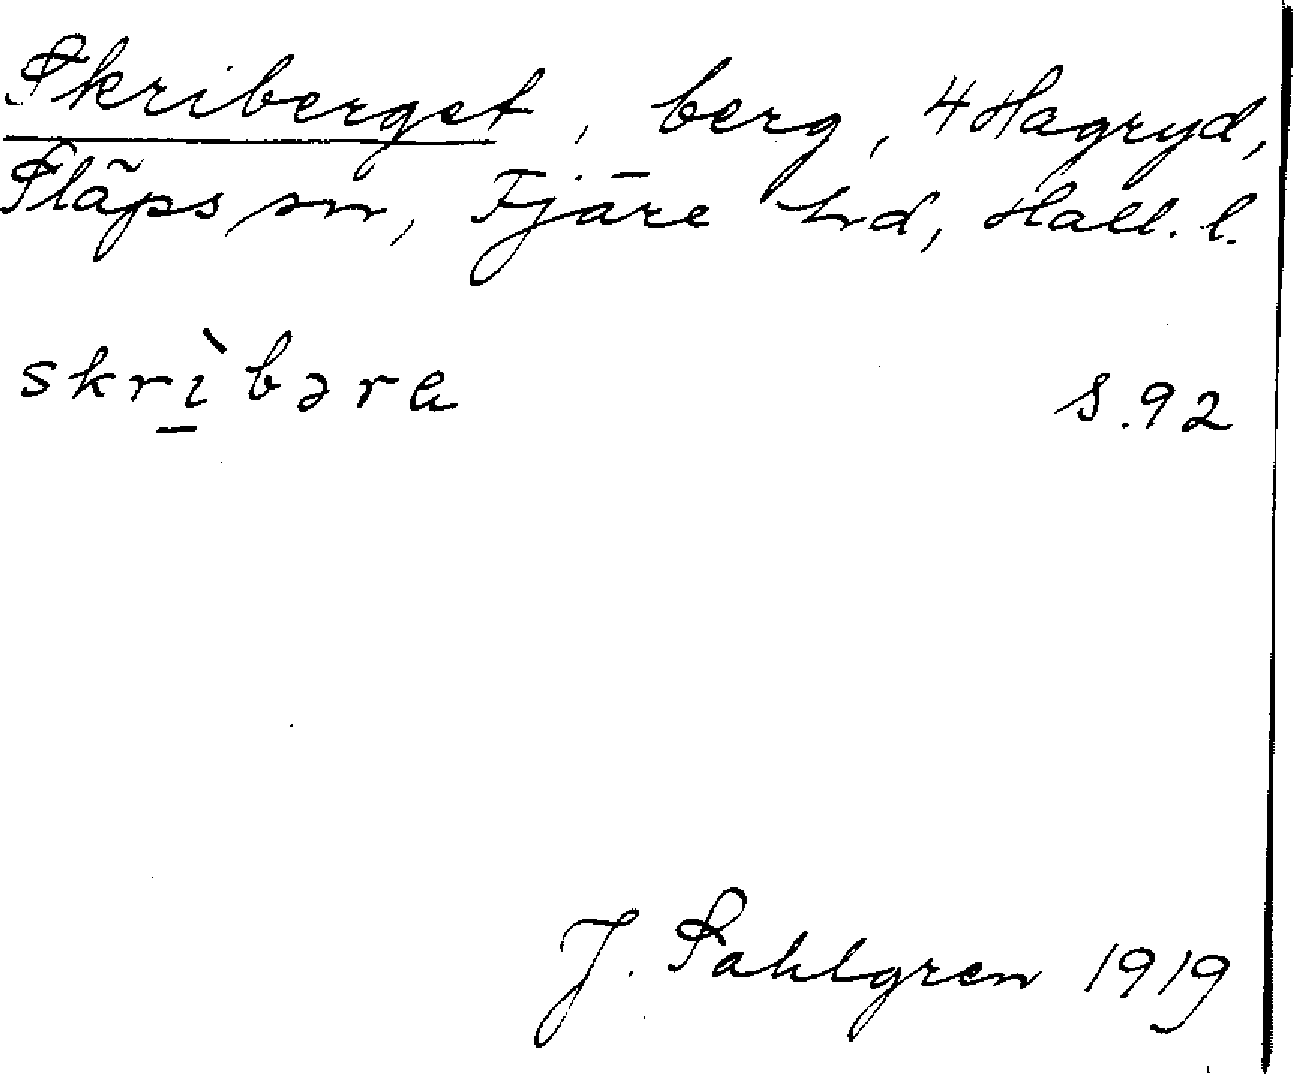 Skriberget, berg, 4 Hagryd,
Släps sn, Fjäre hd, Hall. l.
skrìbəra S. 92
J. Sahlgren 1919